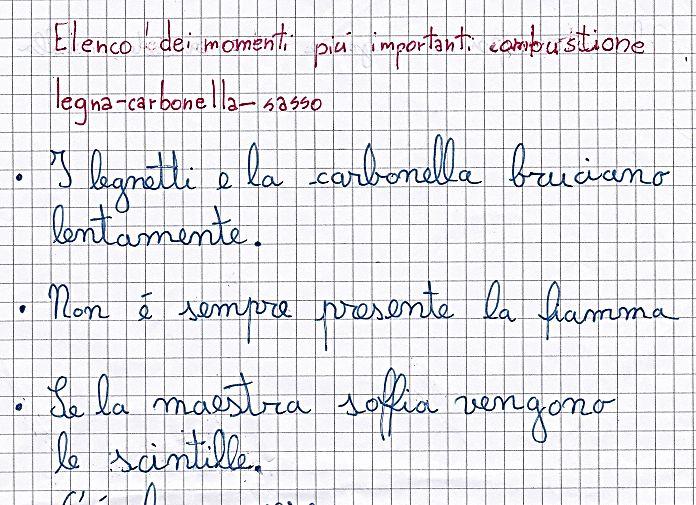 Elenco dei momenti piú importanti combustione
legna-carbonella-sasso
• I legnetti e la carbonella bruciano
lentamente.
• Non é sempre presente la fiamma
• Se la maestra soffia vengono
le scintille.